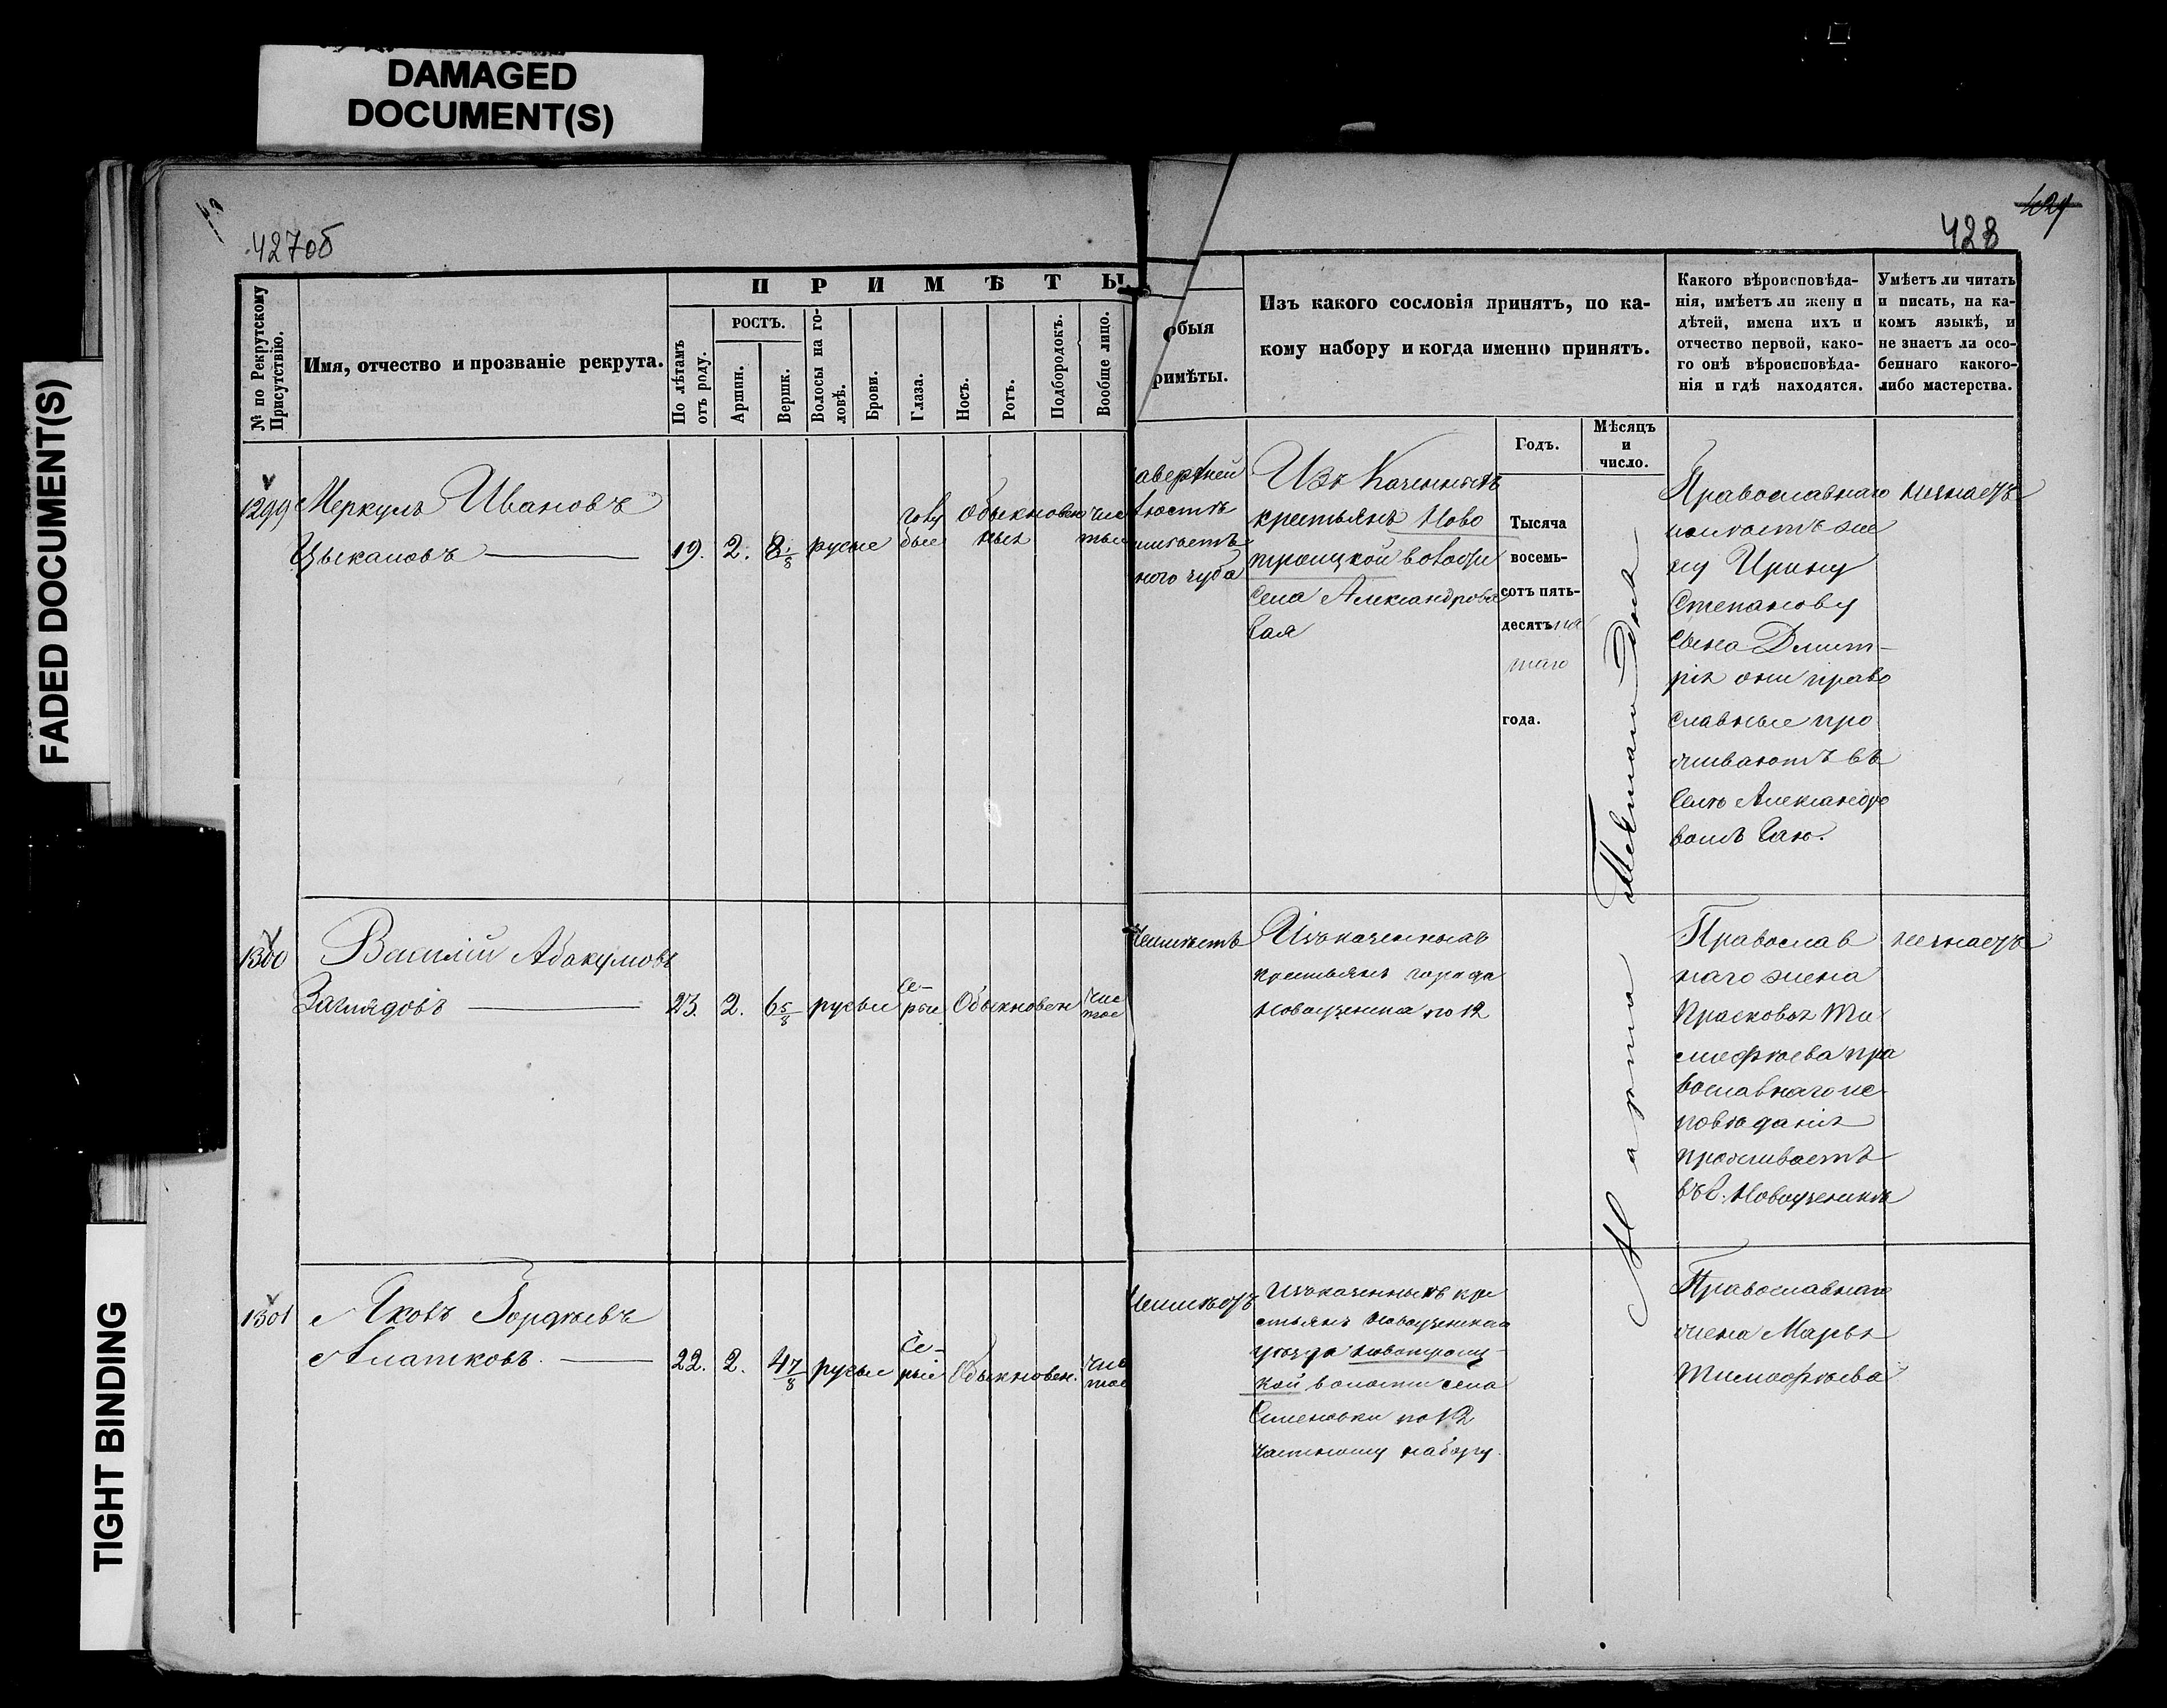 DAMAGED
DOCUMENT(S)
FADED DOCUMENT(S)
TIGHT BINDING
427об
428
№ по Рекрутскому
Присутствію.
Имя, отчество и прозваніе рекрута.
ПРИМѢТЫ.
По лѣтамъ
отъ роду.
РОСТЪ.
Аршин.
Вершк.
Волосы на го-
ловѣ.
Брови.
Глаза.
Носъ.
Ротъ.
Подбородокъ.
Вообще лицо.
обыя
римѣты.
Изъ какого сословія принятъ, по ка-
кому набору и когда именно принятъ.
Годъ.
Мѣсяцъ
и
число.
Какого вѣроисповѣда-
нія, имѣетъ ли жену и
дѣтей, имена ихъ и
отчество первой, како-
го онѣ вѣроисповѣда-
нія и гдѣ находятся.
Умѣетъ ли читать
и писать, на ка-
комъ языкѣ, и
не знаетъ ли осо-
беннаго какого-
либо мастерства.
1299
Меркулъ Ивановъ
Цыкановъ
19. 2. 8 1/8 русые
голу
бые
Обыкновен
ных
чис
тые
аверхней
имѣетъ
ного чуба
Изъ Казенныхъ
крестьянъ Ново
троицкой волости
Села Александрова
Гая
Тысяча
восемь-
сотъ пять-
десятъ пя
таго
года.
Марта
Православнаго
имѣетъ же
ну Ирину
Степанову
сына Дмит-
рія они право
славные про
живаютъ въ
селѣ Александро
вомъ Гаю.
незнаетъ
1300
Василій Абакумовъ
Заглядовъ
23. 2. 6 5/8 русые
Се-
рые
Обыкновен
чис
тое
Неимѣетъ
Изъ казенныхъ
крестьянъ города
Новоузенска по 12
Православ
наго жена
Прасковья Ти
мофѣева пра
вославнаго ис-
повѣданія
проживаетъ
въ г. Новоузенскѣ
незнаетъ
1301
Яковъ Гордѣевъ
22. 2. 4 7/8 русые
Се-
рые
Обыкновен.
чис
тое
Неимѣетъ
Изъ казенныхъ кре
стьянъ Новоузенскаго
уѣзда Новотроиц-
кой волости села
по 12
частному набору.
Православнаго
жена Марья
Тимофѣева